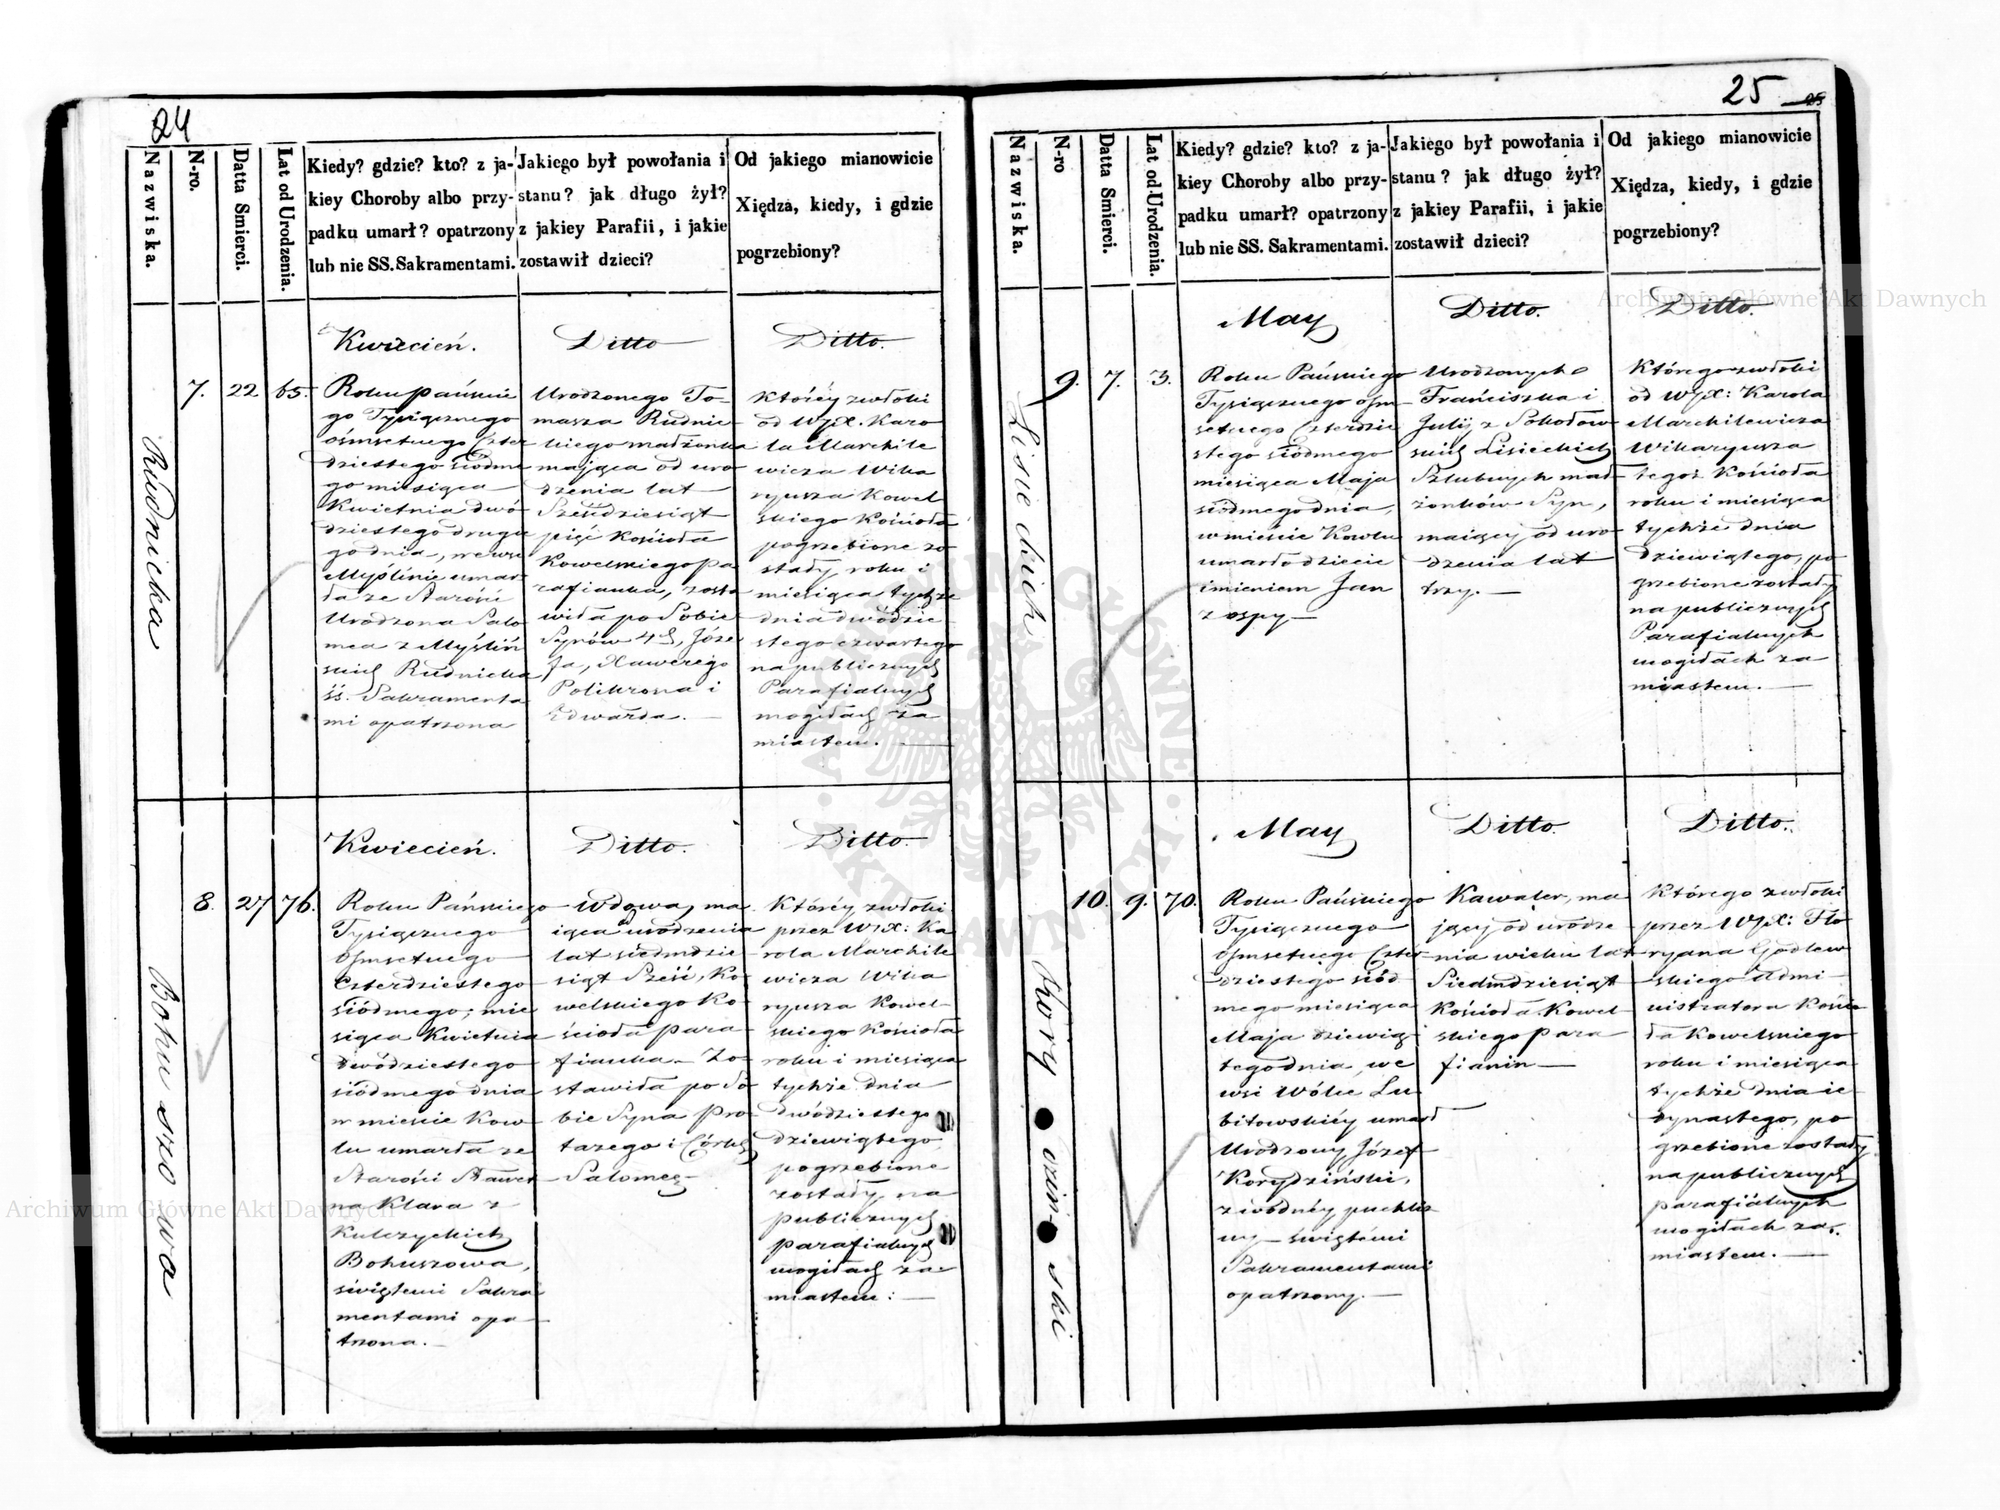 24
Nazwiska.
N-ro.
Datta Smierci.
Lat od Urodzenia.
Kiedy? gdzie? kto? z ja-
kiey Choroby albo przy-
padku umarł? opatrzony
lub nie SS. Sakramentami.
Jakiego był powołania i
stanu? jak długo żył?
z jakiey Parafii, i jakie
zostawił dzieci?
Od jakiego mianowicie
Xiędza, kiedy, i gdzie
pogrzebiony?
Rudnicka
7.
22
65.
Kwiecień.
Roku pańskie
go Tysiącznego
ośmsetnego Czter
dziestego siódme
go miesiąca
Kwietnia dwó
dziestego drugie
go dnia, we wsi
Myślinie umar
ła ze Starości
Urodzona Salo
mea z Myśliń
skich Rudnicka
śś. Sakramenta
mi opatrzona
Ditto
Urodzonego To-
masza Rudnic
kiego małżonka
mająca od uro
dzenia lat
Sześdziesiąt
pięć Kościoła
Kowelskiego pa
rafianka, zosta
wiła po Sobie
Synów 4ch, Józe
fa, Xawerego
Polikrona i
Edwarda.
Ditto.
Któréy zwłoki
od WJX. Karo
la Marchile
wicza Wika
ryusza Kowel
skiego Kościoła
pogrzebione zo
stały, roku i
miesiąca tychże
dnia dwódzie
stego czwartego
na publicznych
Parafialnych
mogiłach za
miastem.
Bohuszowa
8.
27
76.
Kwiecień.
Roku Pańskiego
Tysiącznego
Ośmsetnego
Czterdziestego
siódmego, mie
siąca Kwietnia
dwódziestego
siódmego dnia
w mieście Kow
lu umarła ze
Starości Sławet
na Klara z
Kulczyckich
Bohuszowa,
świętemi Sakra
mentami opa
trzona.
Ditto.
Wdowa, ma
iąca urodzenia
lat siedmdzie
siąt Sześć, Ko
welskiego Ko
ścioła para
fianka. Zo
stawiła po So
bie Syna Pro
tazego i Córkę
Salomeę
Ditto.
Któréy zwłoki
przez WJX: Ka
rola Marchile
wicza Wika
ryusza Kowel
skiego Kościoła
roku i miesiąca
tychże dnia
dwódziestego
dziewiątego,
pogrzebione
zostały na
publicznych
parafialnych
mogiłach za
miastem:
25
25
Nazwiska.
N-ro
Datta Smierci.
Lat od Urodzenia.
Kiedy? gdzie? kto? z ja-
kiey Choroby albo przy-
padku umarł? opatrzony
lub nie SS. Sakramentami.
Jakiego był powołania i
stanu? jak długo żył?
z jakiey Parafii, i jakie
zostawił dzieci?
Od jakiego mianowicie
Xiędza, kiedy, i gdzie
pogrzebiony?
Lisieckich
9.
7.
3.
May
Roku Pańskiego
Tysiącznego ośm
setnego Czterdzie
stego siódmego
miesiąca Maja
siódmego dnia,
w mieście Kowlu
umarło dziecie
imieniem Jan
z ospy
Ditto.
Urodzonych
Franciszka i
Julij z Sokołow
skich Lisieckich
Szlubnych mał
żonków Syn,
maiący od uro
dzenia lat
trzy.
Ditto.
Którego zwłoki
od WJX: Karola
Marchilewicza
Wikaryusza
tegoż Kościoła
roku i miesiąca
tychże dnia
dziewiątego, po
grzebione zostały
na publicznych
Parafialnych
mogiłach za
miastem.
10.
9.
70.
May
Roku Pańskiego
Tysiącznego
Ośmsetnego Czter
dziestego siód
mego miesiąca
Maja dziewią
tego dnia, we
wsi Wólce Lu
bitowskiéy umarł
Urodzony Józef
Korydziński,
z wodnéy puchli
ny świętemi
Sakramentami
opatrzony.
Ditto.
Kawaler, ma
jący od urodze
nia wieku lat
Siedmdziesiąt
Kościoła Kowel
skiego para
fianin
Ditto.
Którego zwłoki
przez WJX: Flo
ryana Godlew
skiego Admi
nistratora Kościo
ła Kowelskiego
roku i miesiąca
tychże dnia ie
dynastego, po
grzebione zostały
na publicznych
parafialnych
mogiłach za
miastem.
Archiwum Główne Akt Dawnych
Archiwum Główne Akt Dawnych
ARCHIWUM GŁÓWNE AKT DAWNYCH